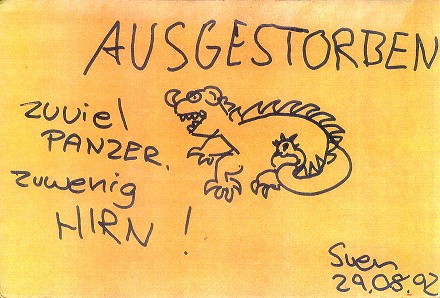 AUSGESTORBEN
zuviel
PANZER,
zuwenig
HIRN!
Sven
29.08.92